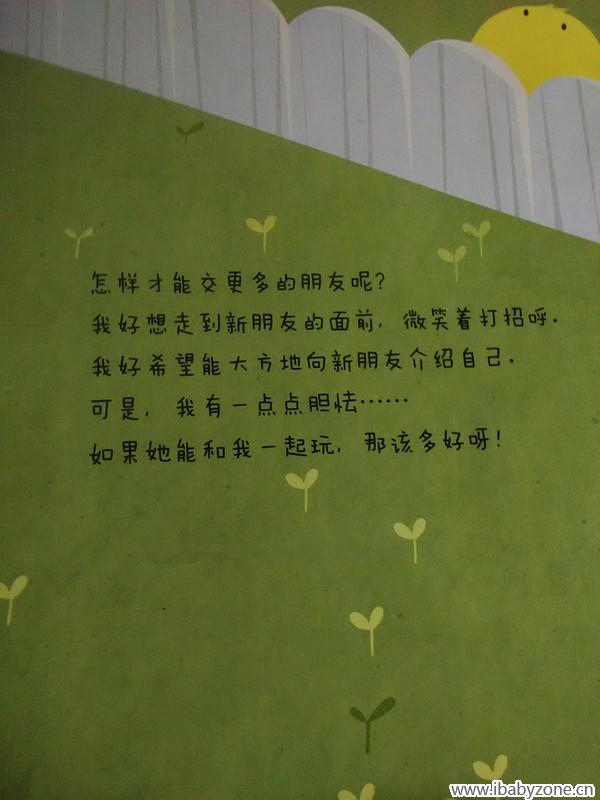 怎样才能交更多的朋友呢？
我好想走到新朋友的面前，微笑着打招呼．
我好希望能大方地向新朋友介绍自己．
可是，我有一点点胆怯……
如果她能和我一起玩，那该多好呀！
www.ibabyzone.cn